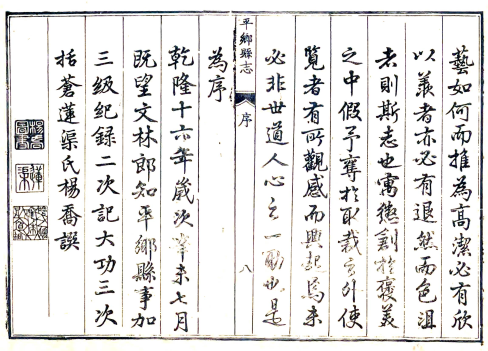 藝如何而推為髙潔必有欣
以羨者亦必有退然而色沮
者則斯志也寓懲創於褒美
之中假予奪於取裁之外使
覧者有所觀感而興起焉未
必非世道人心之一助也是
平鄉縣志
序
八
為序
乾隆十六年歲次辛未七月
既望文林郎知平鄉縣事加
三級紀録二次記大功三次
括蒼蓮渠氏楊喬譔